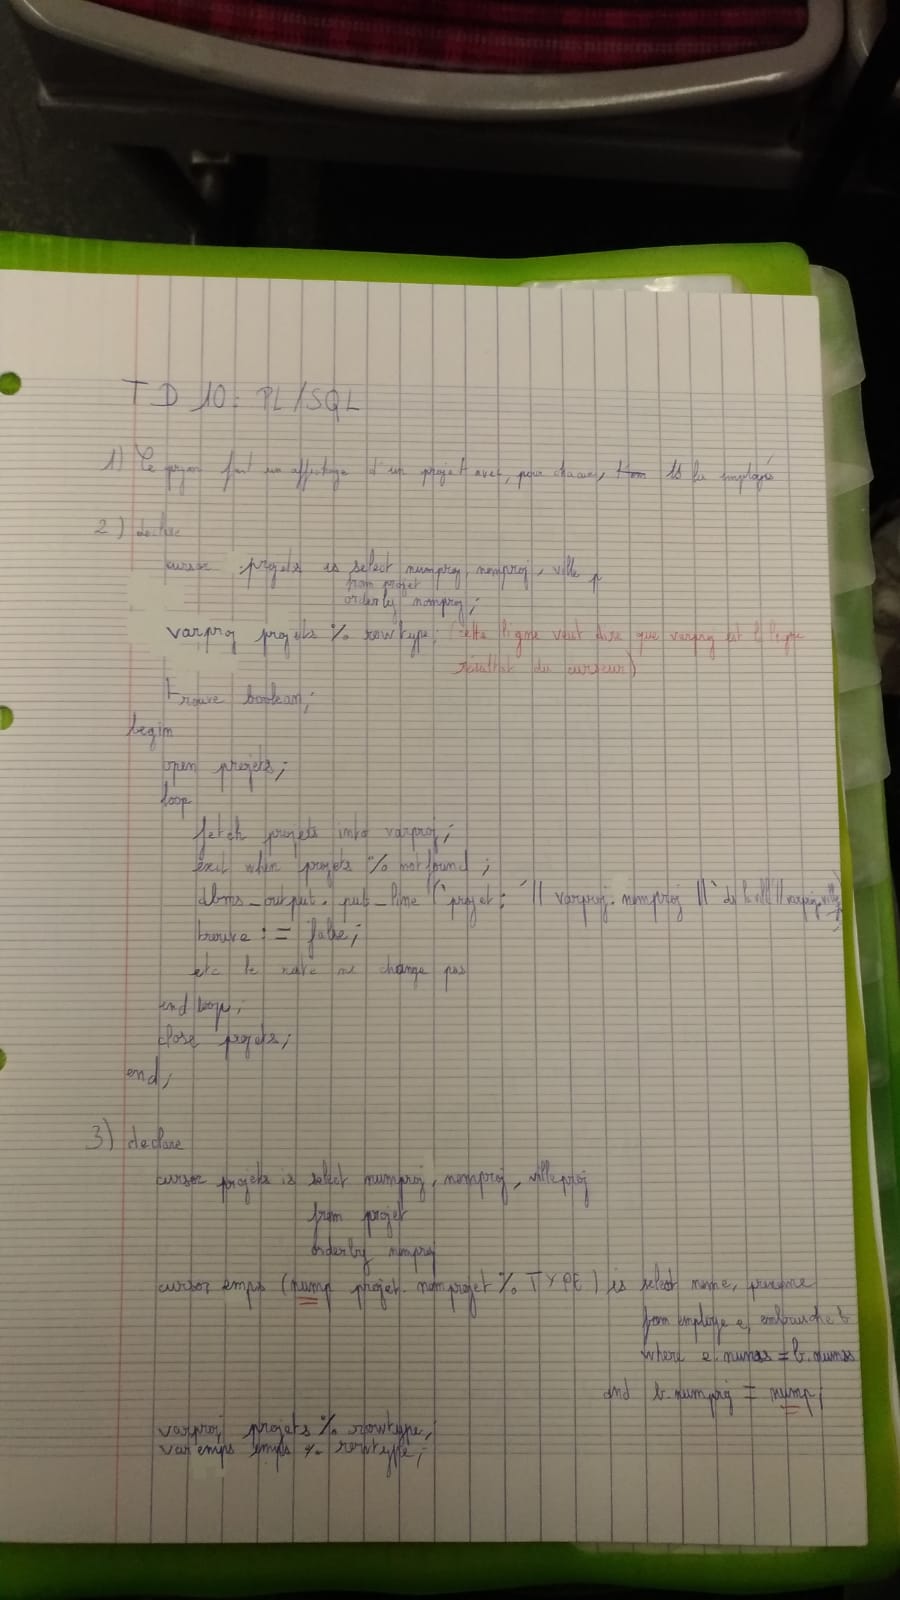 TD 10: PL/SQL
1) Ce fait un affichage d'un projet avec, pour chacun, les employés
2) declare
cursor projets is select numproj, nomproj, ville p
from projet
orderby nomproj;
varproj projets % rowtype; (cette ligne veut dire que varproj est la ligne
résultat du curseur)
trouve boolean;
begin
open projets;
loop
fetch projets into varproj;
exit when projets % notfound;
dbms_output.put_line ('projet: ' || varproj.nomproj || ' de la ville' || varproj.ville
trouve := false;
etc le reste ne change pas
end loop;
close projets;
end;
3) declare
cursor projets is select numproj, nomproj, villeproj
from projet
orderby nomproj
cursor emps (nump projet.nomprojet % TYPE) is select nome, prenome
from employe e, embauche b
where e.numss = b.numss
and b.numproj = nump;
varproj projets % rowtype;
varemps emps % rowtype;